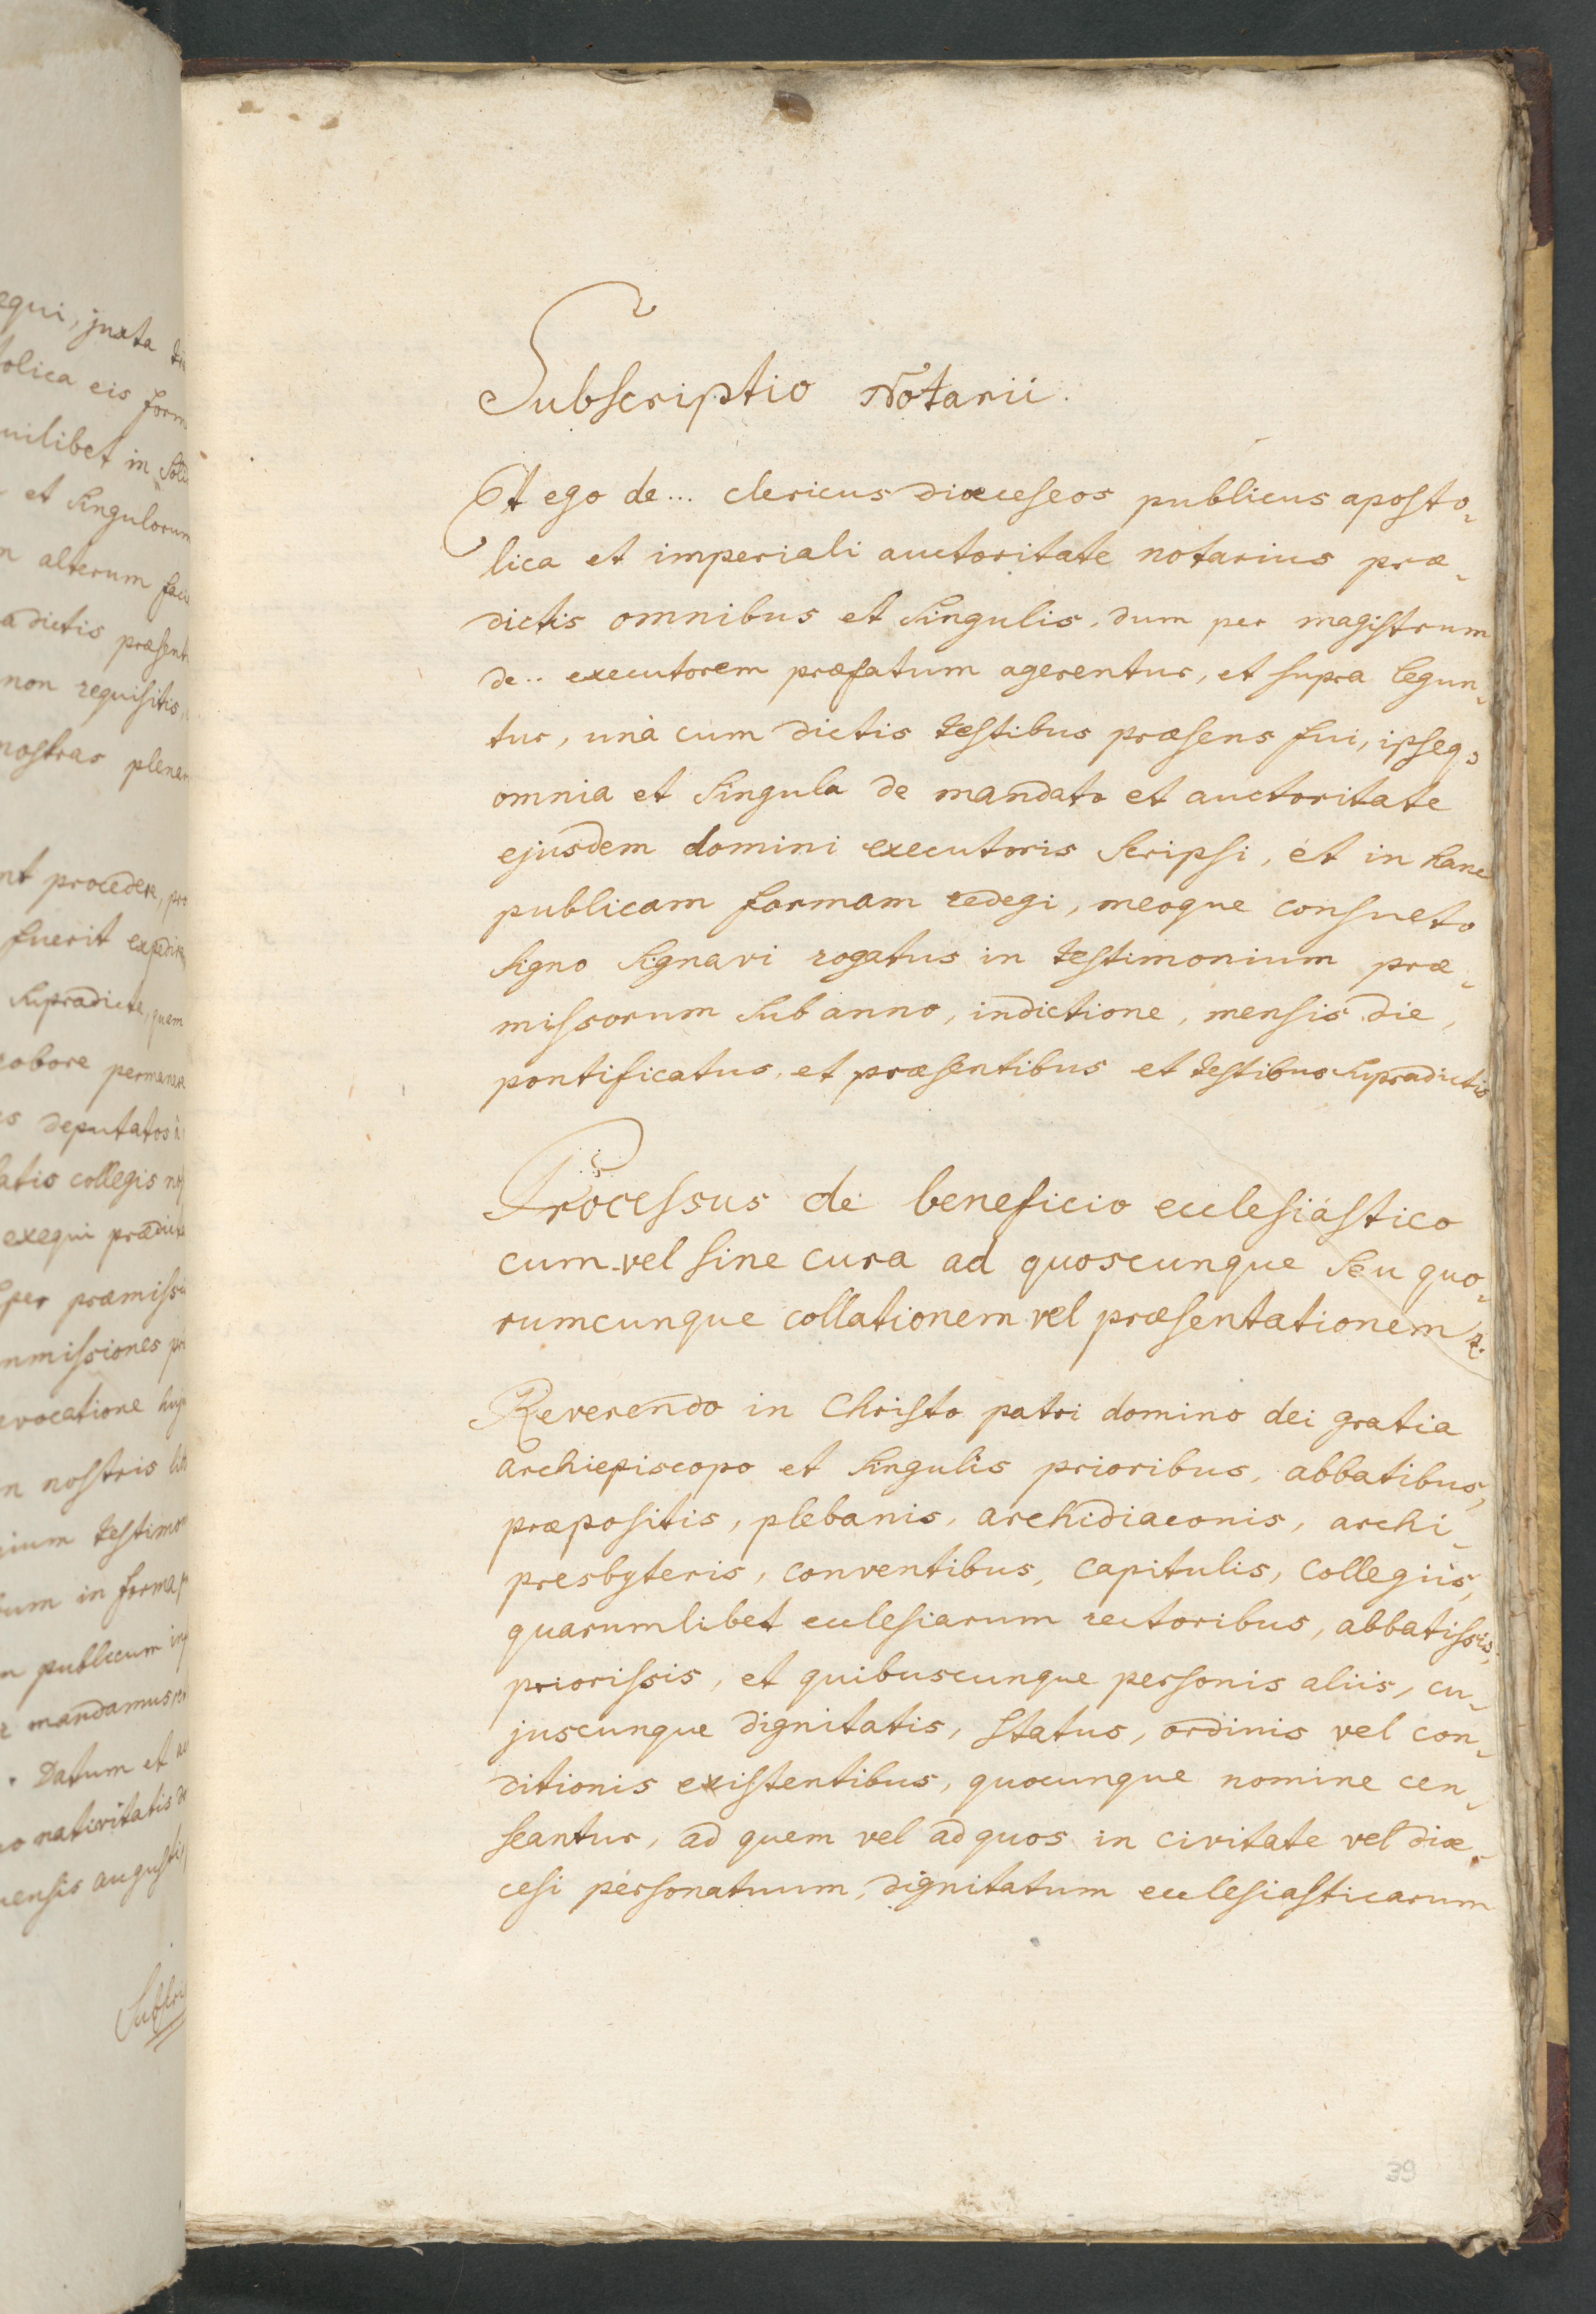 equi, juxta
tolica eis form
uilibet in Soli
et Singulorum
alterum faci
adictis præsent
non requisitis,
nostras plenar
nt procedere, pro
fuerit expedire,
Supradicte, quem
robore permanere
deputatos
latis collegis
exequi prædict
per præmissi
mmissiones
evocatione
n nostris
ium testimon
um in forma
publicum
mandamus
. Datum et
o nativitatis
ensis augusti,
Subscri
Subscriptio Notarii.
Et ego de... clericus diœceseos publicus aposto-
lica et imperiali auctoritate notarius præ-
dictis omnibus et Singulis, dum per magistrum
de.. executorem præfatum agerentur, et supra legun-
tur, unà cum dictis testibus præsens fui, ipseq3
omnia et Singula de mandato et auctoritate
ejusdem domini executoris Scripsi, et in hanc
publicam formam redegi, meoque consueto
Signo Signavi rogatus in testimonium præ-
missorum Sub anno, indictione, mensis die,
pontificatus, et præsentibus et testibus Supradictis
Processus de beneficio ecclesiastico
cum vel sine cura ad quoscunque Seu quo-
rumcunque collationem vel præsentationem &.
Reverendo in Christo patri domino dei gratia
archiepiscopo et Singulis prioribus, abbatibus,
præpositis, plebanis, archidiaconis, archi-
presbyteris, conventibus, capitulis, collegiis,
quarumlibet ecclesiarum rectoribus, abbatissis,
priorissis, et quibuscunque personis aliis, cu-
juscunque dignitatis, status, ordinis vel con-
ditionis existentibus, quocunque nomine cen-
seantur, ad quem vel ad quos in civitate vel diœ-
cesi personatuum, dignitatum ecclesiasticarum
39